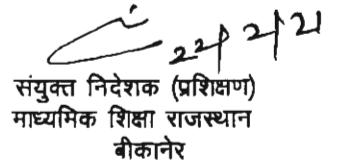 22/2/21
संयुक्त निदेशक (प्रशिक्षण)
माध्यमिक शिक्षा राजस्थान
बीकानेर